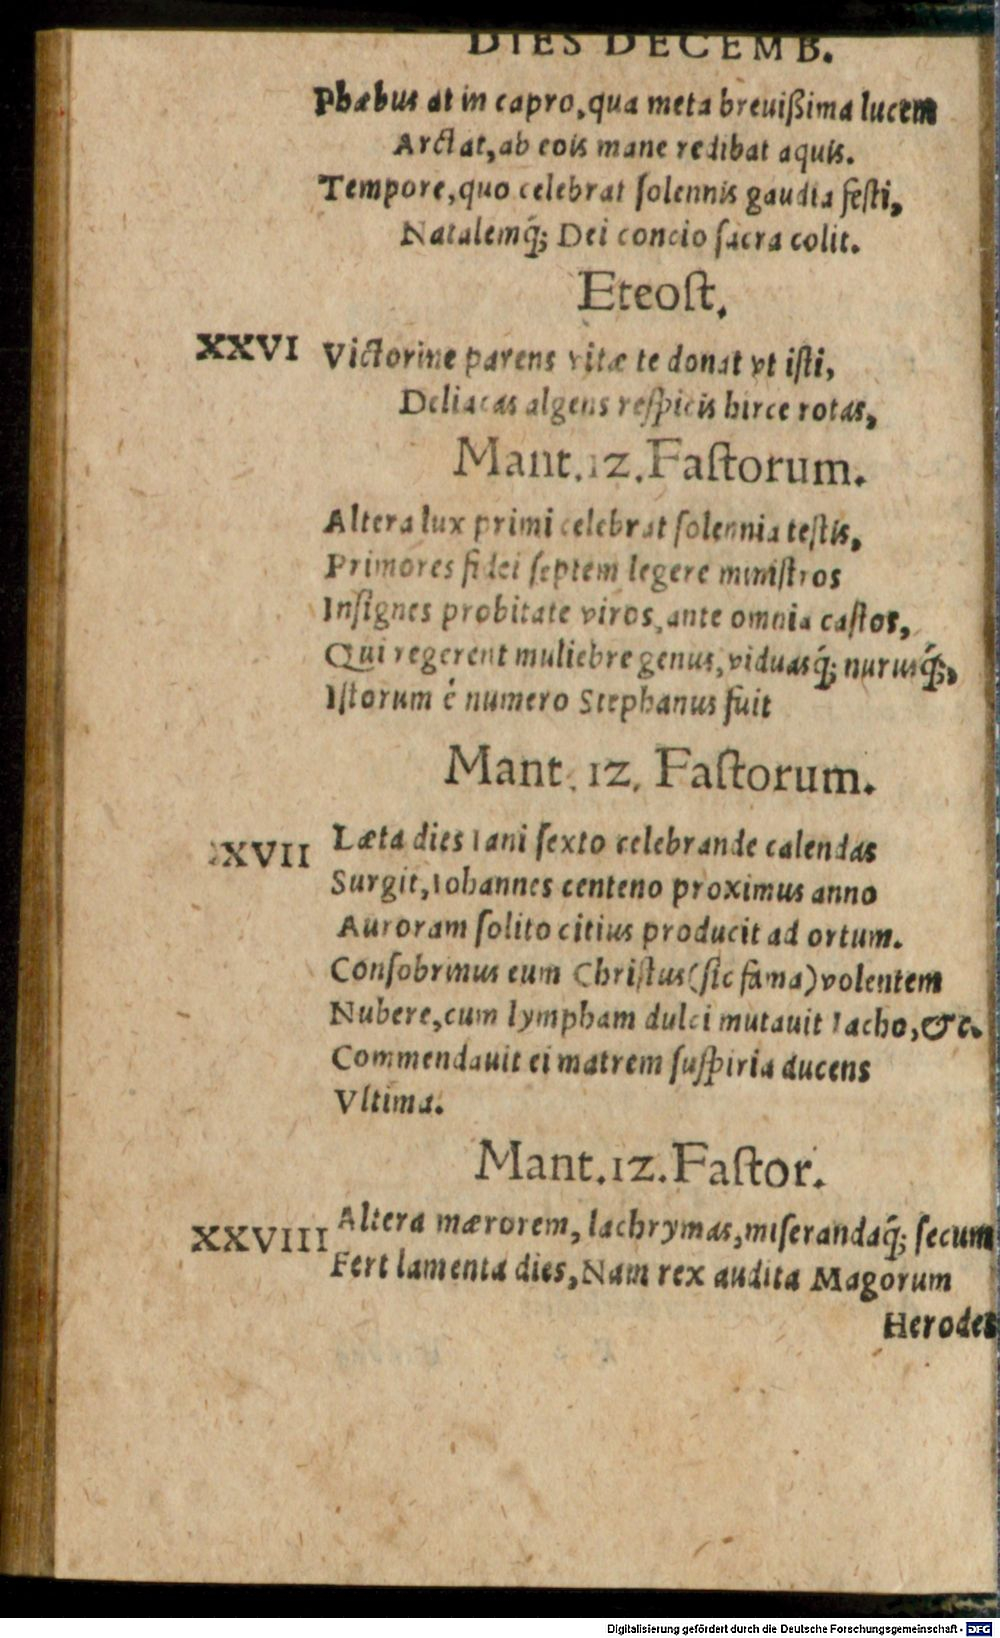 DIES DECEMB.
Phæbus at in capro, qua meta breuißima lucem
Arctat, ab eois mane redibat aquis.
Tempore, quo celebrat solennis gaudia festi,
Natalemq́; Dei concio sacra colit.
Eteost.
XXVI Victorine parens vitæ te donat vt isti,
Deliacas algens respicis hirce rotas,
Mant. 12. Fastorum.
Altera lux primi celebrat solennia testis,
Primores fidei septem legere ministros
Insignes probitate viros, ante omnia castos,
Qui regerent muliebre genus, viduasq́; nurusq́;,
Istorum é numero Stephanus fuit
Mant. 12. Fastorum.
XVII Læta dies Iani sexto celebrande calendas
Surgit, Iohannes centeno proximus anno
Auroram solito citius producit ad ortum.
Consobrinus eum Christus (sic fama) volentem
Nubere, cum lympham dulci mutauit Iacho, &c.
Commendauit ei matrem suspiria ducens
Vltima.
Mant. 12. Fastor.
XXVIII Altera mærorem, lachrymas, miserandaq́; secum
Fert lamenta dies, Nam rex audita Magorum
Herodes
Digitalisierung gefördert durch die Deutsche Forschungsgemeinschaft - DFG